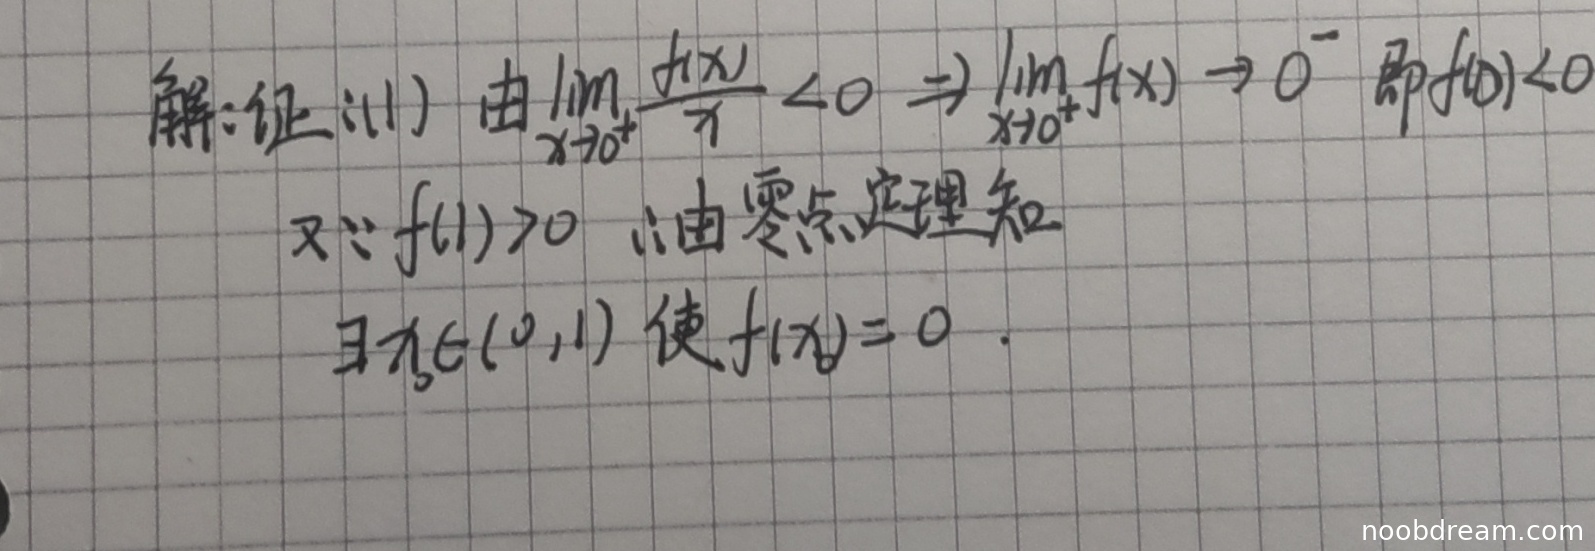 解:证:(1) 由 lim_{x→0⁺} f(x)/x <0 ⇒ lim_{x→0⁺} f(x) → 0⁻ 即f(0)<0
又∵ f(1)>0 ∴由零点定理知
∃x₀∈(0,1) 使 f(x₀)=0 .
noobdream.com